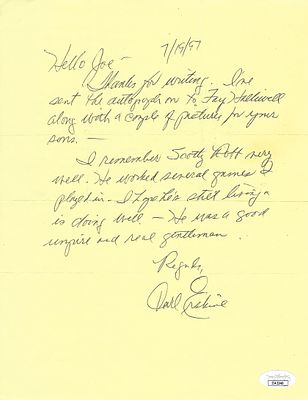 7/19/97
Hello Joe -
Thanks for writing. I've
sent the autograph on to Fay
along with a couple of pictures for your
sons. -
I remember Scotty Robb very
well. He worked several games I
played in - I hope he's still living &
is doing well - He was a good
umpire and real gentleman.
Regards,
Carl Erskine
JSA